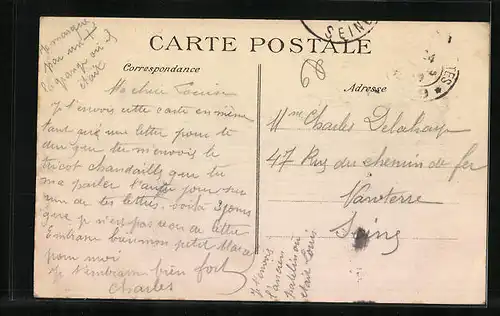 Je marque
par un +
la grange où
était
SEINE
CARTE POSTALE
Correspondance
Adresse
Ma chère Louise
Je t'envois cette carte en même
tant que une lettre pour te
dire que tu m'envois le
tricot chandaille que tu
ma parler l'autre jour sur
un de tes lettres. voilà 3 jours
que je n'est pas reçu de lettre
Embrasse bien mon petit Marcel
pour moi
Je t'embrasse bien fort
Charles
Mme Charles Delahaye
47 Rue du chemin de fer
Nanterre
Seine
Je t'envois
l'ancien